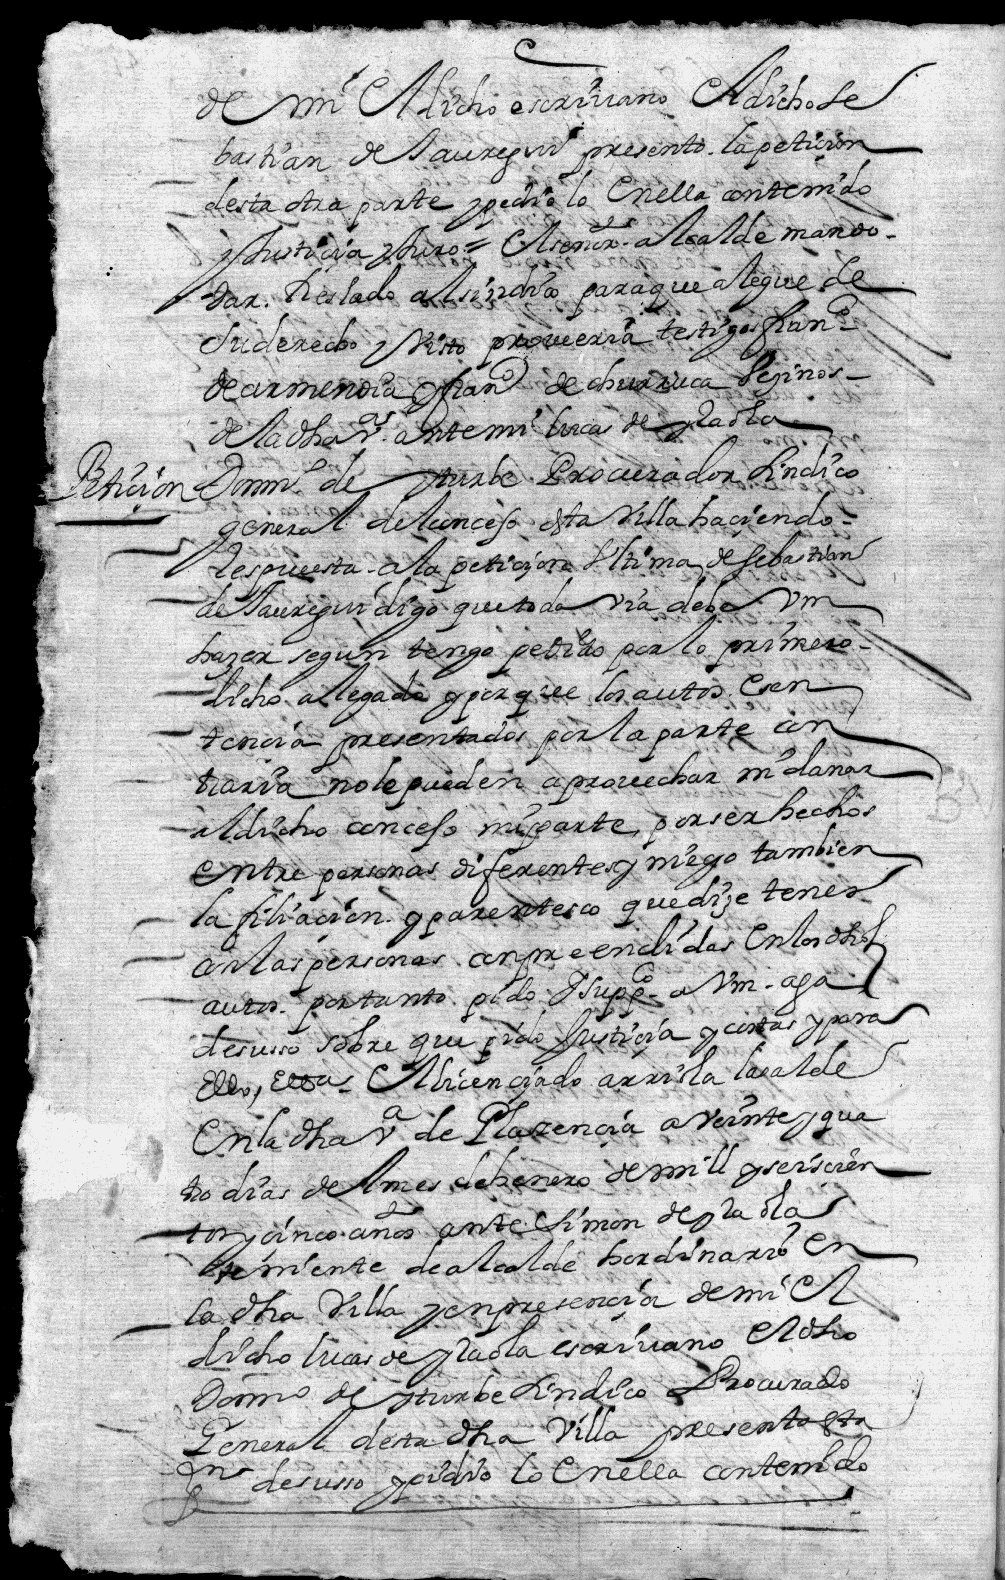 de mi El dicho escriuano El dicho se
bastian de Jauregui presento la peticion
desta otra parte y pidio lo Enella contenido
y Justicia y Juro = El señor alcalde mando
dar treslado al sindico para que alegue de
su derecho y Visto proueeria testigos fran.co
de armendia y fran.co de churruca Vezinos
de la dha v.a ante mi lucas de ylaola
Peticion Domi.o de yturbe Procurador Sindico
general del concejo dsta Villa haciendo
Respuesta a la peticion Vltima de sebastian
de Jauregui digo que toda Via debe Vm
hazer segun tengo pedido por lo primero
dicho alegado y porque los autos E sen
tencia presentados por la parte con
traria no le pueden aprouechar ni danar
al dicho concejo mi parte por ser hechos
entre personas diferentes y niego tambien
la filiacion y parentesco que dize tener
con las personas conpreendidas En los dhos
autos por tanto pido y supp.co a Vm aga
desusso sobre que pido Justicia y costas y para
Ello, Etta El licenciado arriola lasalde
En la dha v.a de Plazencia a veinte y qua
tro dias del mes de henero de mill y seiscien
tos y cinco años ante Simon de ylaola
teniente de alcalde hordinario En
la dha Villa y en presencia de mi El
dicho lucas de ylaola escriuano El dho
Domi.o de yturbe Sindico Procurado
General desta dha Villa presento Esta
desusso y pidio lo Enella contenido